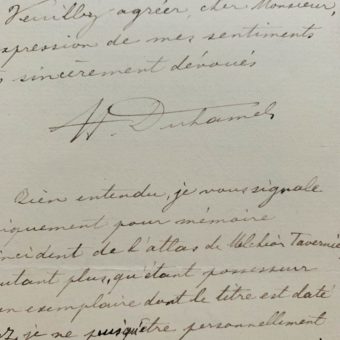 Veuillez agréer, cher Monsieur,
expression de mes sentiments
s sincèrement dévoués
H. Duhamel
Bien entendu, je vous signale
iquement pour mémoire
incident de l'atlas de Melchior Tavernie
utant plus, qu'étant possesseur
un exemplaire dont le titre est daté
je ne puis être personnellement